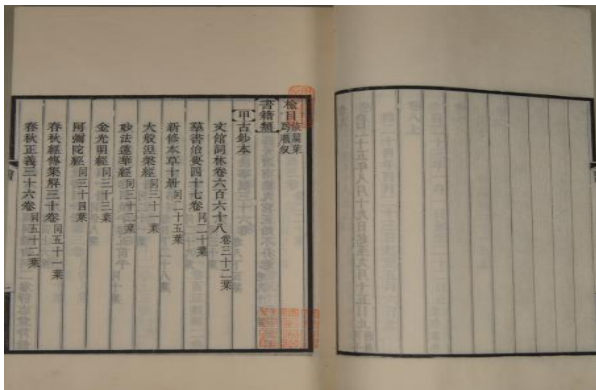 檢目
書籍類
甲 古鈔本
文館詞林卷六百六十八 卷三十二葉
羣書治要四十七卷 同二十葉
新修本草十册 同二十五葉
大般涅槃經 同三十一葉
妙法蓮華經 同三十二葉
金光明經 同三十三葉
阿彌陀經 同三十四葉
春秋經傳集解三十卷 同五十一葉
春秋正義三十六卷 同五十二葉